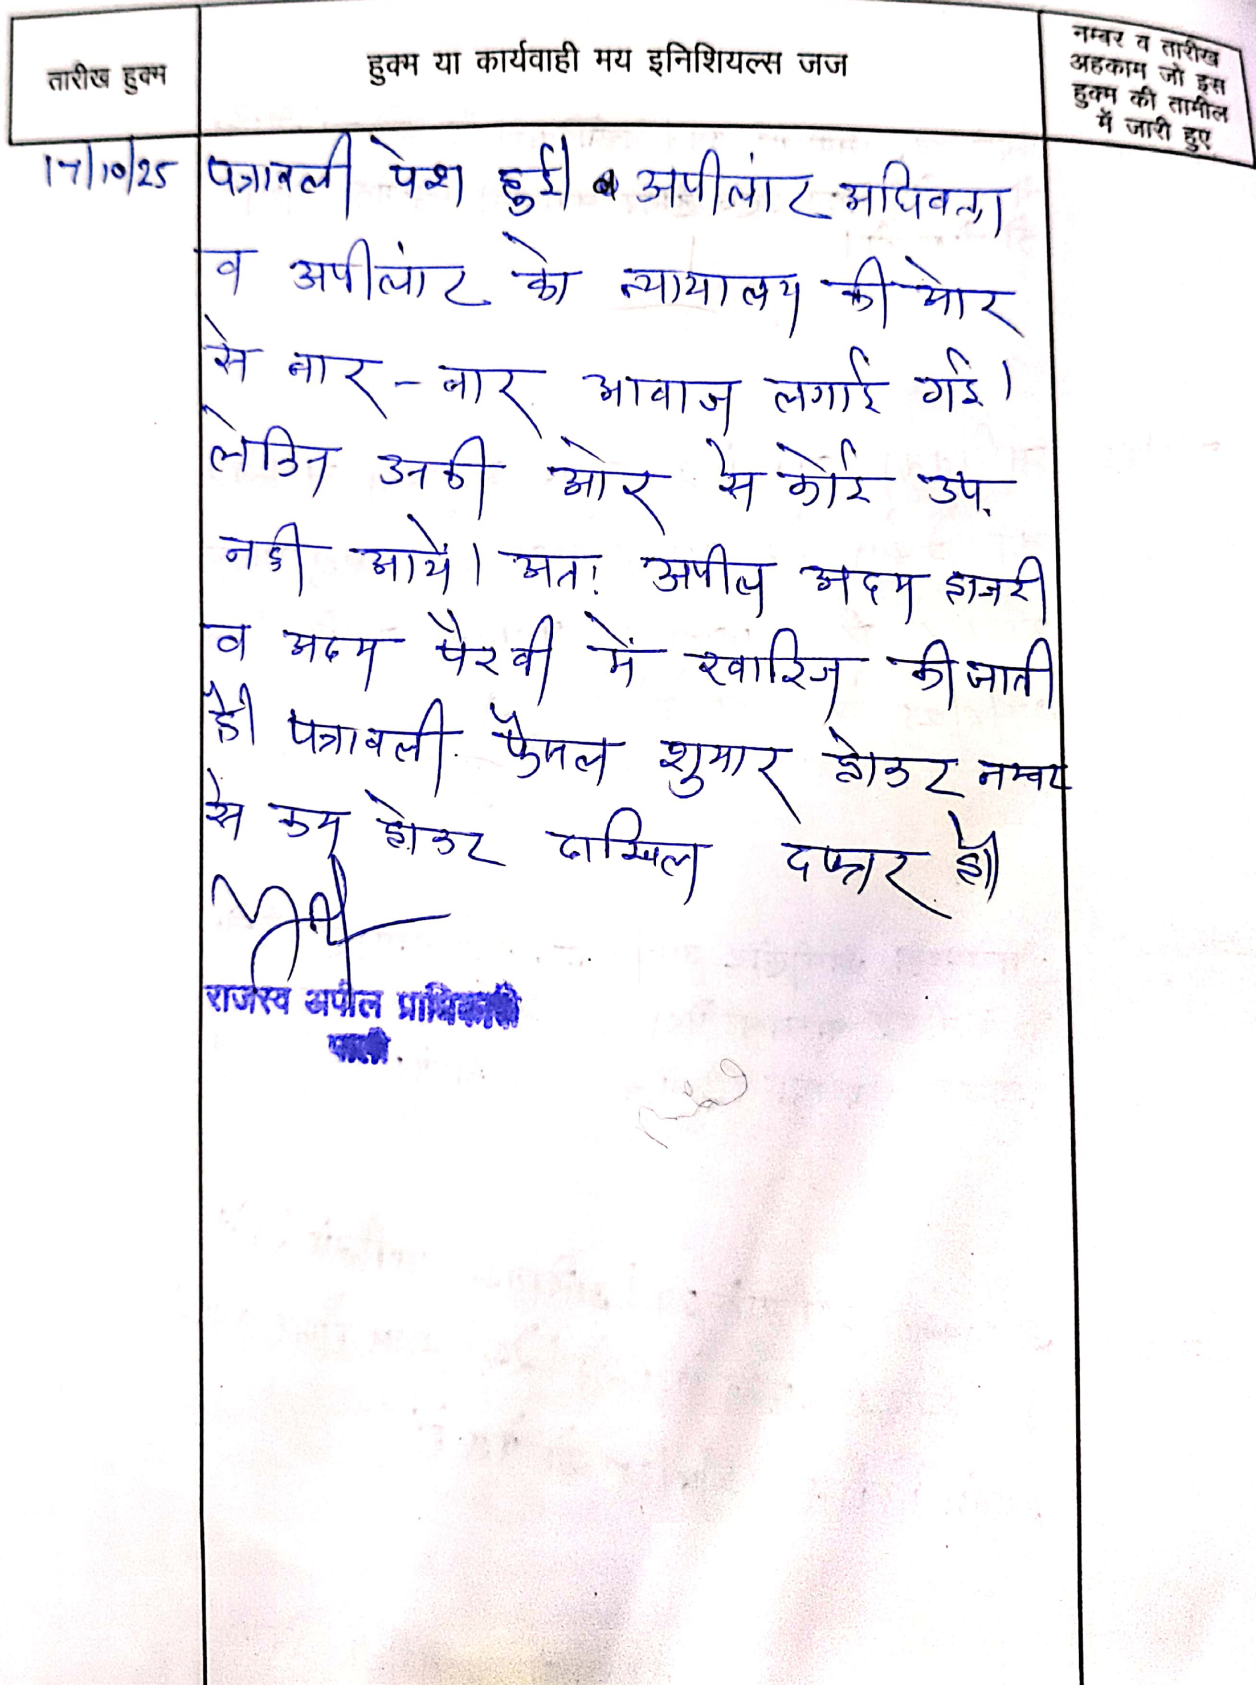 तारीख हुक्म
हुक्म या कार्यवाही मय इनिशियल्स जज
नम्बर व तारीख
अहकाम जो इस
हुक्म की तामील
में जारी हुए
17/10/25
पत्रावली पेश हुई। अपीलांट अधिवक्ता
व अपीलांट को न्यायालय की ओर
से बार-बार आवाज लगाई गई।
लेकिन उनकी ओर से कोई उप.
नही आयें। अतः अपील अदम हाजरी
व अदम पैरवी में खारिज की जाती
है। पत्रावली फैसल शुमार होकर नम्बर
से कम होकर दाखिल दफ्तर हो।
राजस्व अपील प्राधिकारी
पाली.